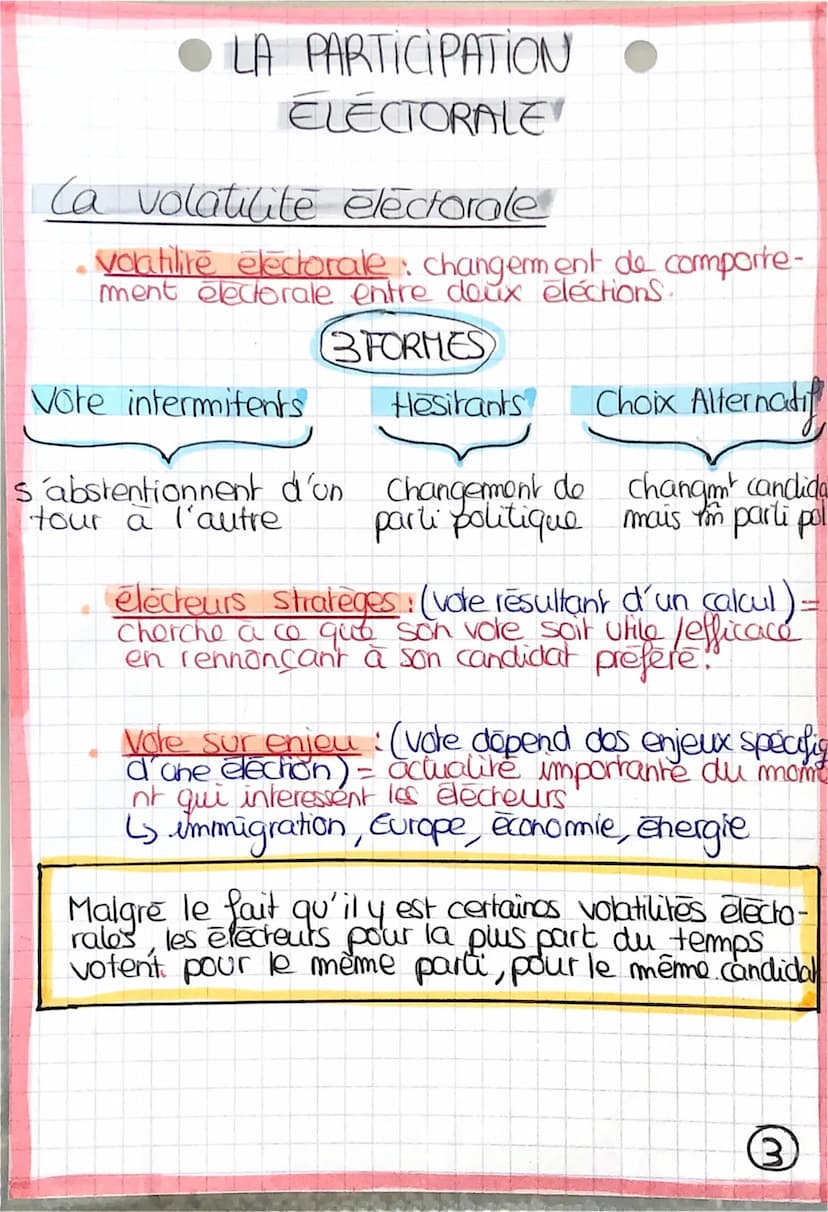 LA PARTICIPATION
ÉLÉCTORALE
La volatilité éléctorale
• volatilité éléctorale : changemment de comporte-
ment éléctorale entre deux éléctions.
3 FORMES
Vote intermitents Hésitants Choix Alternatif
s'abstentionnent d'un Changement de changmt candida
tour à l'autre parti politique mais parti pol
• élécteurs stratèges : (vote résultant d'un calcul) =
cherche à ce que son vote soit utile/efficace
en rennonçant à son candidat préféré.
• Vote sur enjeu : (vote dépend des enjeux spécifiq
d'une éléction) = actualité importante du mome
nt qui interessent les élécteurs
↳ immigration, Europe, économie, énergie
Malgré le fait qu'il y est certaines volatilités élécto-
rales, les élécteurs pour la plus part du temps
votent pour le même parti, pour le même candidat
3